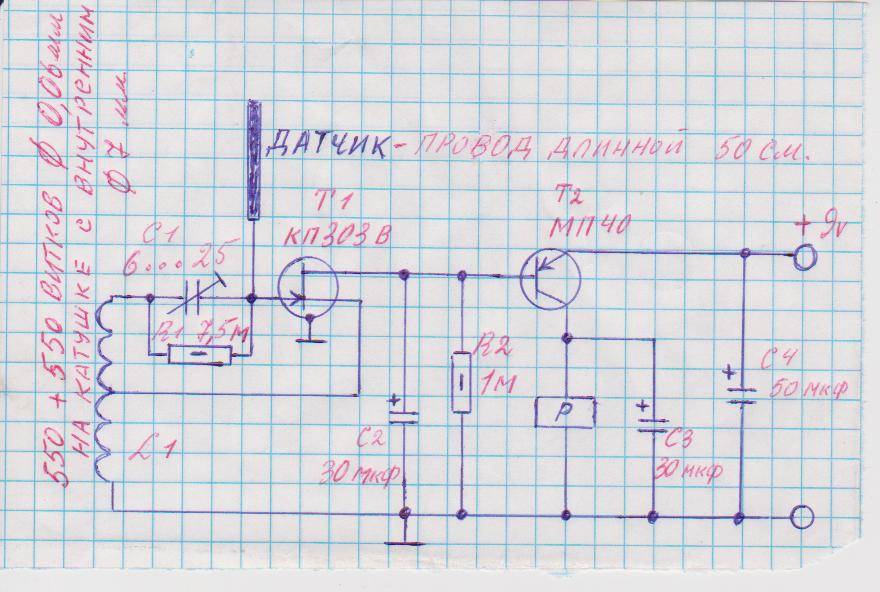 550 + 550 ВИТКОВ Ø 0,06мм
НА КАТУШКЕ С ВНУТРЕННИМ
Ø 7 мм.
ДАТЧИК - ПРОВОД ДЛИННОЙ 50 СМ.
Т1
КП303В
Т2
МП40
+ 9v
С1
6...25
R1 7,5М
R2
1М
L1
+
С2
30мкф
Р
+
С3
30мкф
+
С4
50мкф